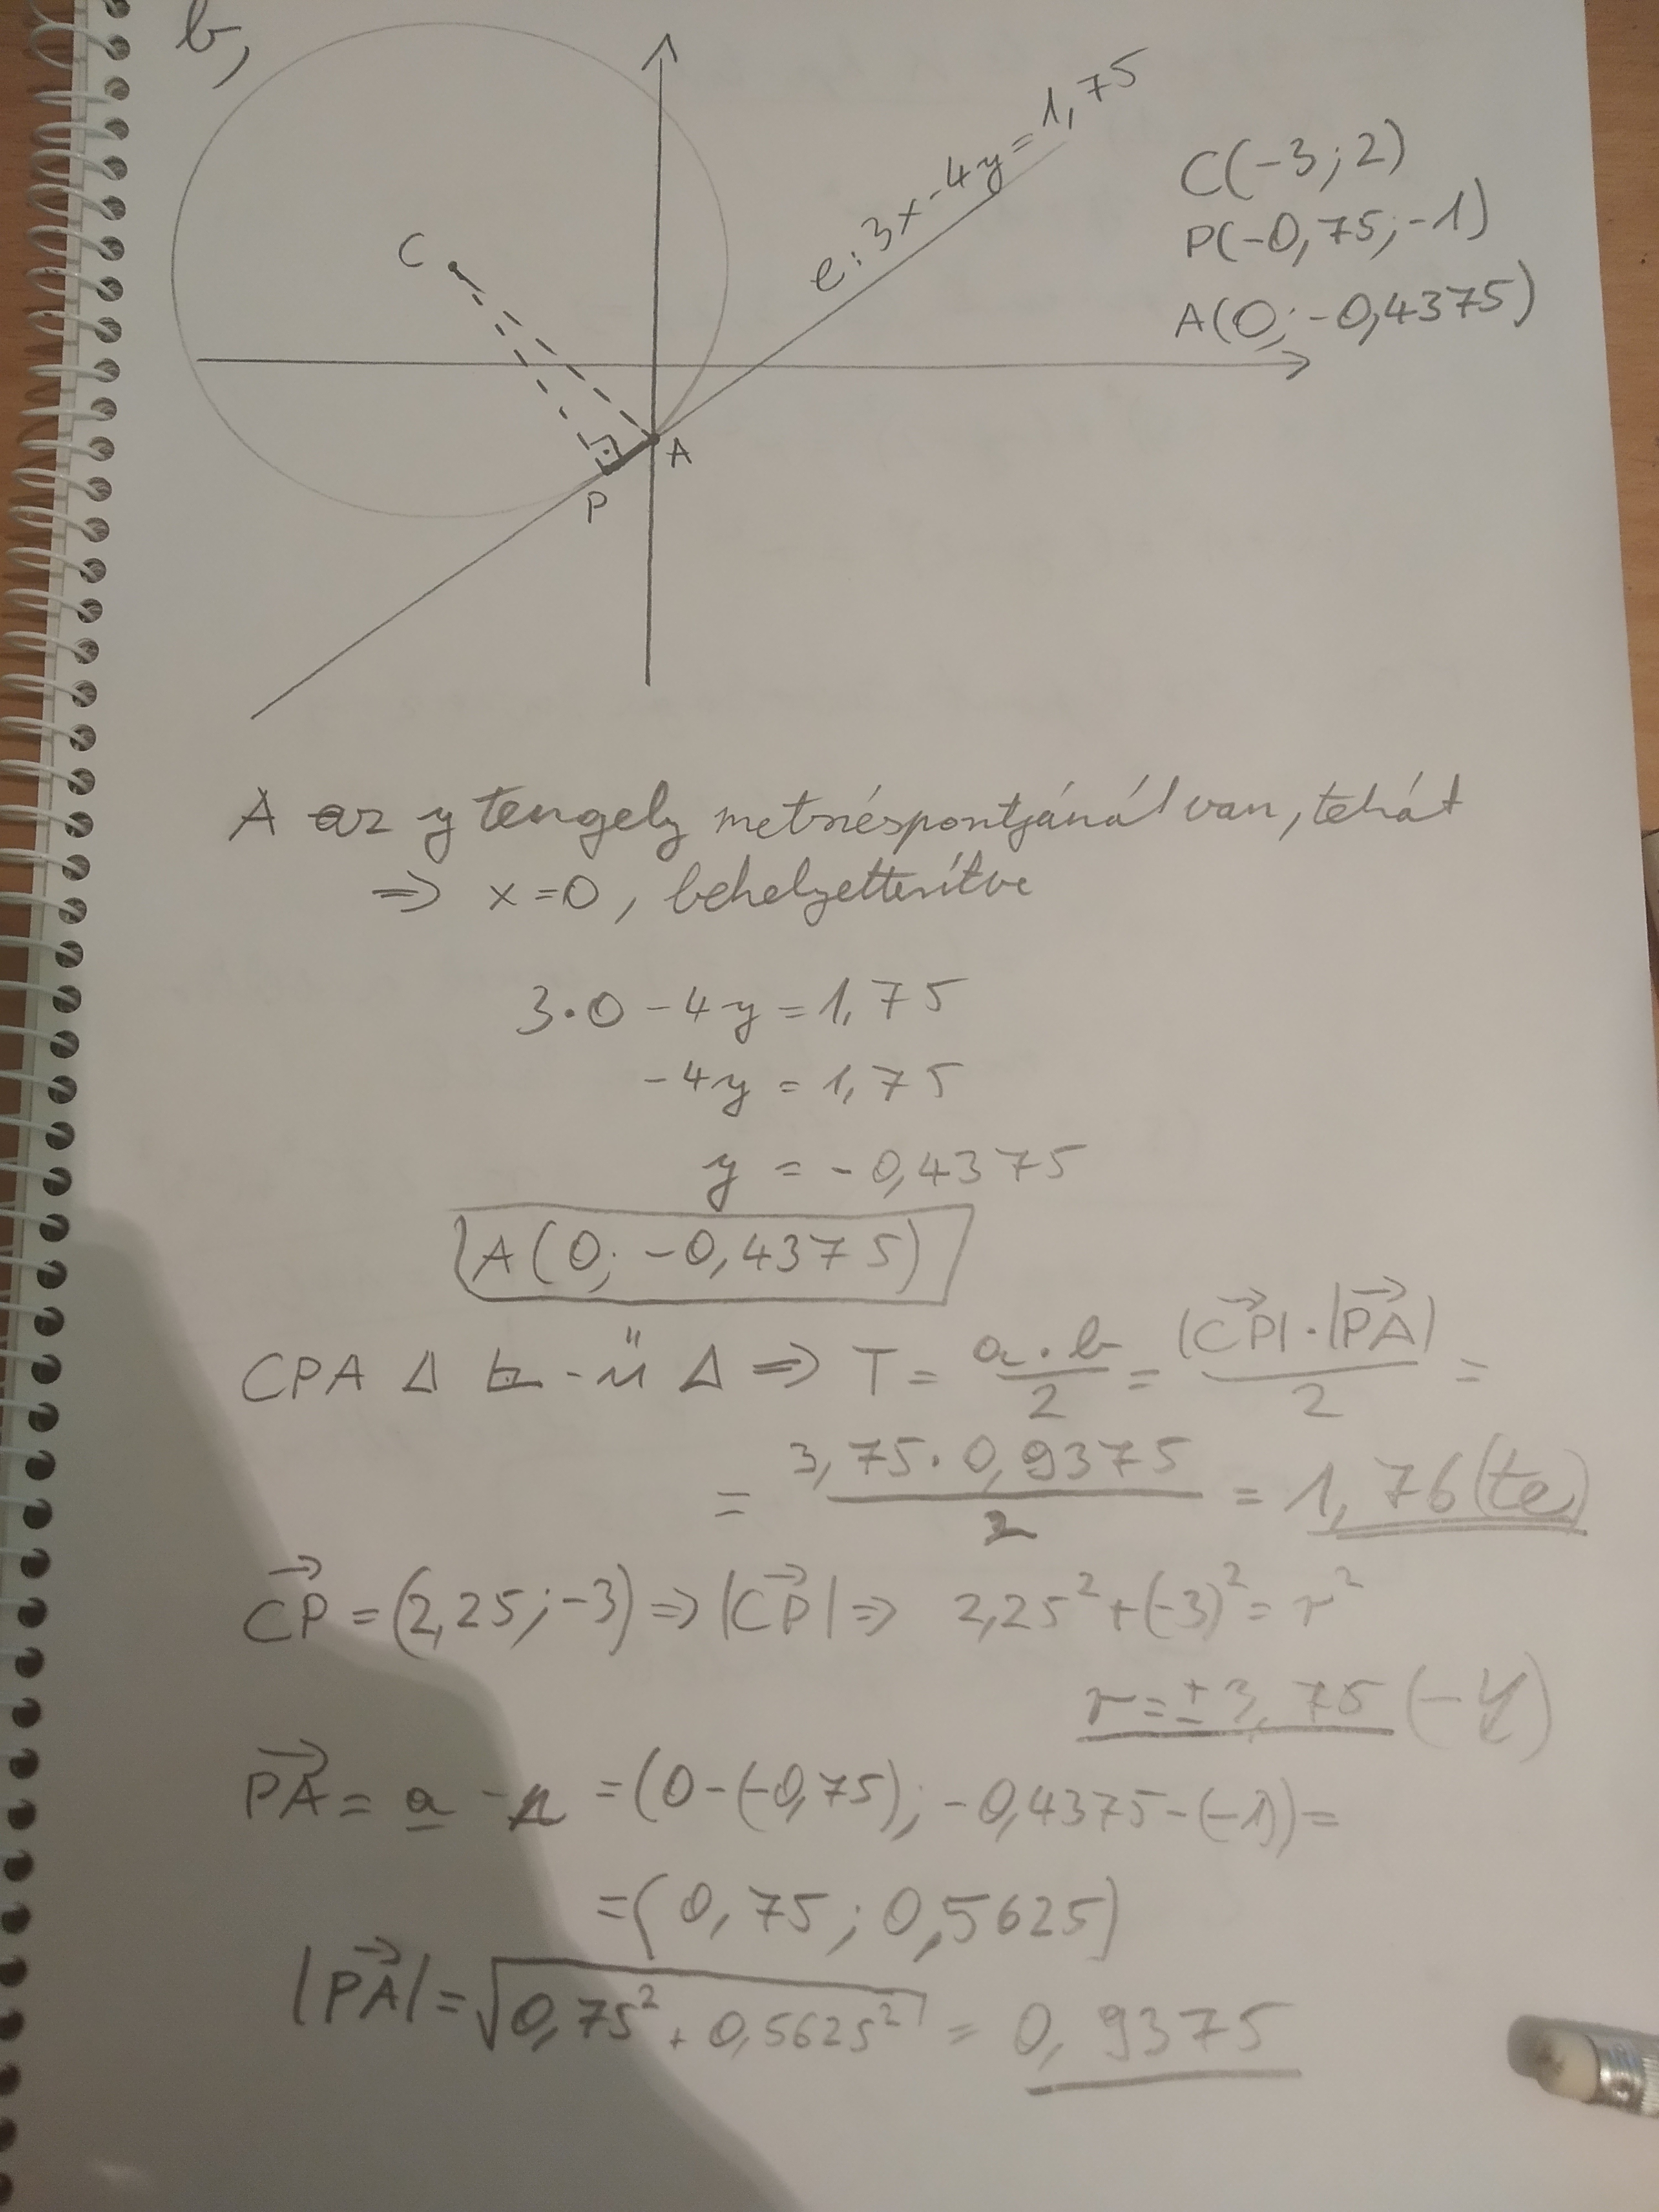 b,
e: 3x-4y=1,75
C(-3; 2)
P(-0,75; -1)
A(0; -0,4375)
C
A
P
A az y tengely metszéspontjánál van, tehát
⇒ x=0, behelyettesítve
3·0-4y=1,75
-4y=1,75
y = -0,4375
A(0; -0,4375)
CPA Δ ⊾-ű Δ ⇒ T = a·b/2 = |CP→|·|PA→|/2 =
= 3,75·0,9375/2 = 1,76(te)
CP→ = (2,25; -3) ⇒ |CP→| ⇒ 2,25²+(-3)² = r²
r=±3,75 (-↯)
PA→ = a - p = (0-(-0,75); -0,4375-(-1)) =
=(0,75; 0,5625)
|PA→| = √(0,75² + 0,5625²) = 0,9375